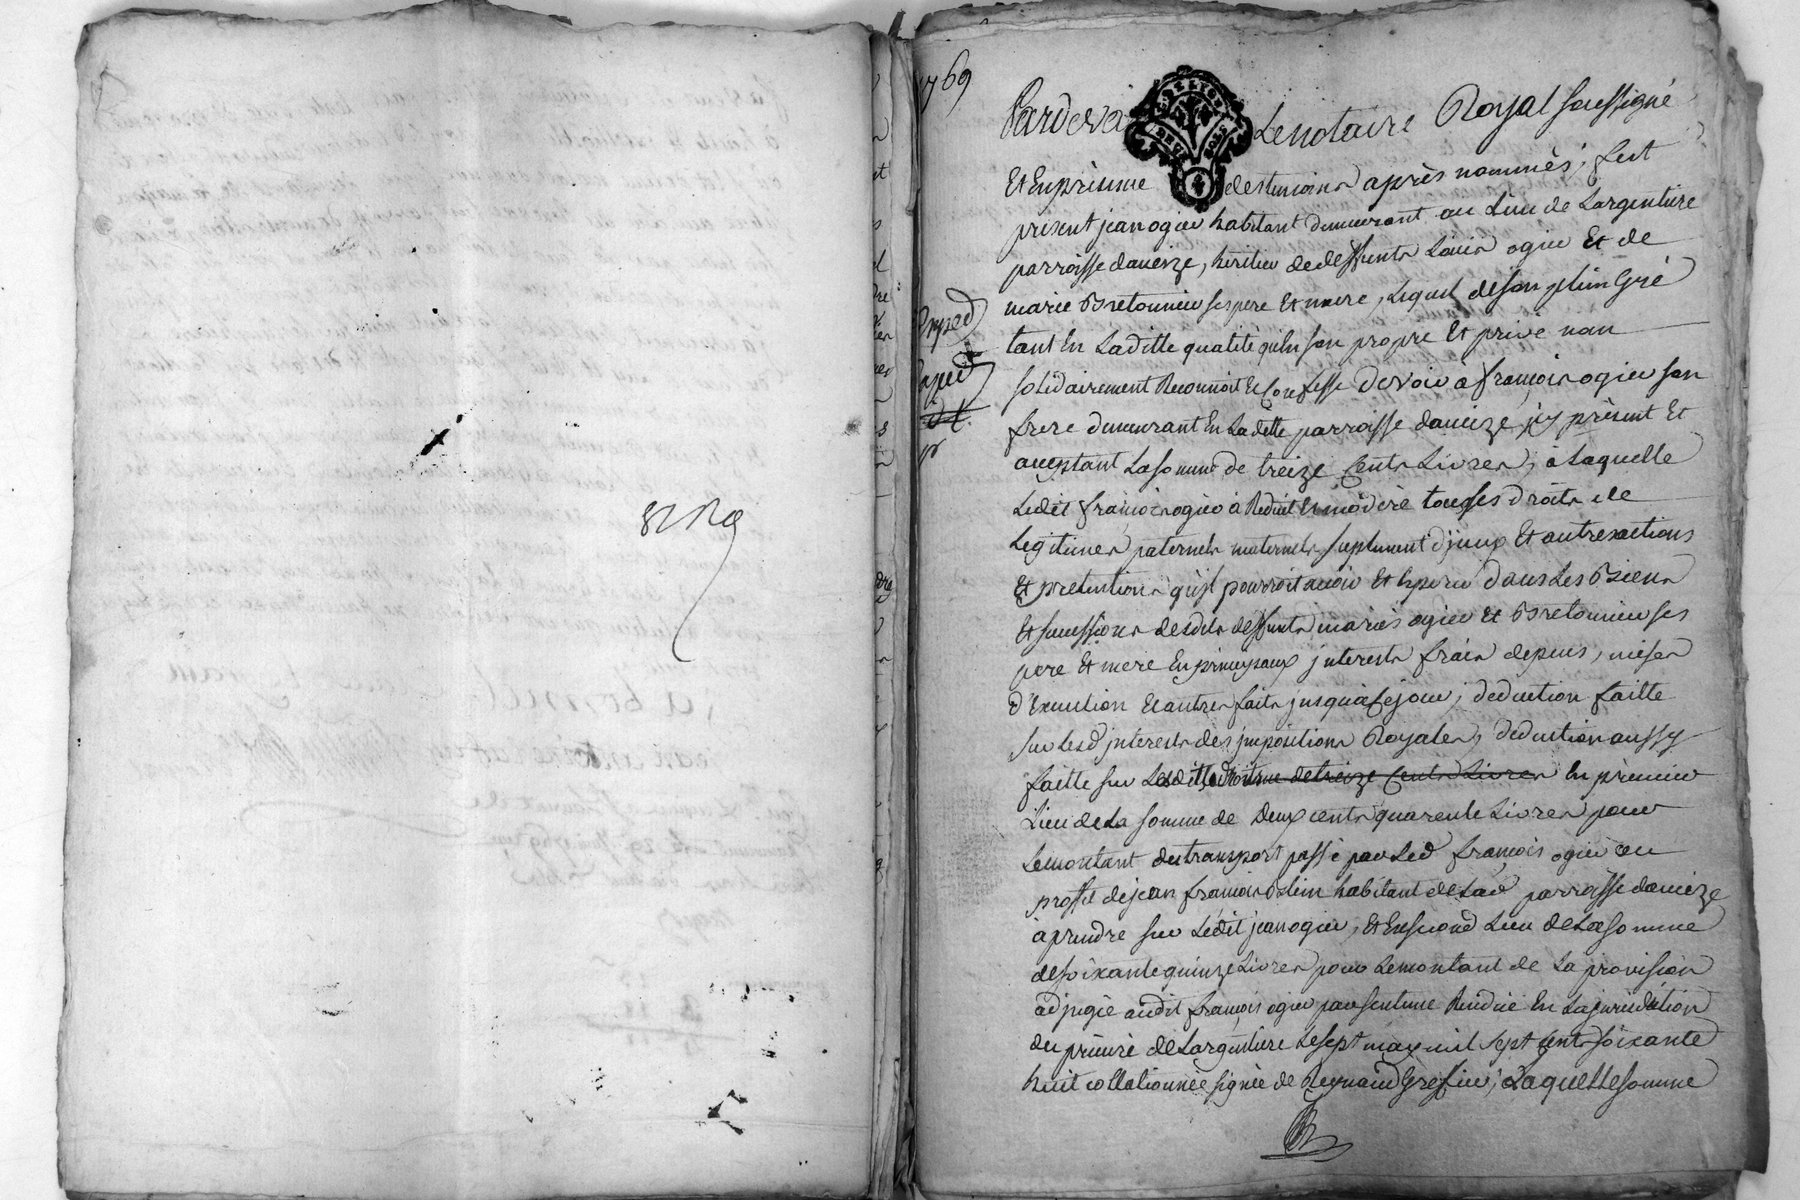 1769
Pardeva Le notaire Royal soussigné
Et En présence des temoins après nommés, fut
présent jean ogier habitant demeurant au Lieu de Largentiere
parroisse daveize, héritier de deffunts Louis ogier Et de
marie Bretonnier ses pere Et mere, Lequel de son plein Gré
tant En Laditte qualité qu'En son propre Et privé nom
solidairement Reconnoit Et Confesse devoir à françois ogier son
frere demeurant En Laditte parroisse daveize jcy présent Et
acceptant La somme de treize Cents Livres, a Laquelle
Ledit françois ogier à Reduit Et modéré tous ses droits de
Legitimes paternels maternels suplement d'jceux Et autres actions
Et prétentions qu'jl pourroit avoir Et Esperer dans Les Biens
Et successions desdits deffunts mariés ogier et Bretonnier ses
pere Et mere En principaux jnterests frais depens, mises
d'Exécution Et autres faits jusqu'à Ce jour, deduction faitte
sur Lesd jnterests des jmpositions Royales, deduction aussy
faitte sur de treize Cents Livres En prémier
Lieu de La somme de Deux cents quarente Livres pour
Le montant du transport passé par Led françois ogier au
proffit de jean françois habitant de Lad parroisse daveize
à prendre sur Ledit jean ogier, Et En second Lieu de La somme
de soixante quinze Livres pour Le montant de La provision
adjugée audit françois ogier par sentence Rendüe En La jurisdiction
du prieuré de Largentiere Le sept may mil sept Cents soixante
huit collationnée signée de Reynaud Grefier, Laquelle somme
Exped